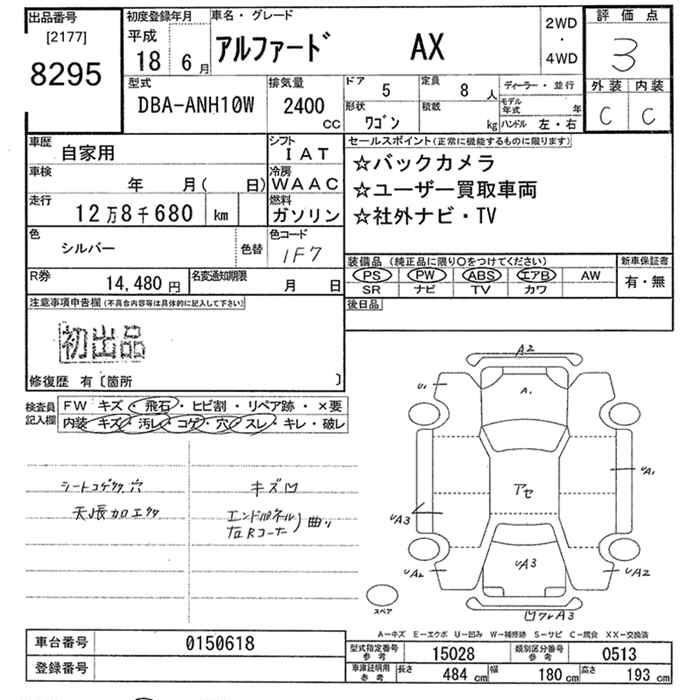 出品番号
[2177]
8295
初度登録年月
平成
18年 6月
車名・グレード
アルファード AX
2WD
・
4WD
評価点
3
外装 内装
C C
型式
DBA-ANH10W
排気量
2400
CC
ドア 5
定員 8 人
形状 ワゴン
積載 kg
ディーラー・並行
モデル年式 年
ハンドル 左・右
車歴 自家用
シフト IAT
車検 年 月( 日)
冷房 WAAC
走行 12万8千680 km
燃料 ガソリン
色 シルバー 色替
色コード 1F7
R券 14,480 円
名変通知期限 月 日
セールスポイント(正常に機能するものに限ります)
☆バックカメラ
☆ユーザー買取車両
☆社外ナビ・TV
装備品 (純正品に限り○をつけてください)
PS PW ABS エアB AW
SR ナビ TV カワ
新車保証書
有・無
後日品
注意事項申告欄(不具合内容等は具体的に記入して下さい)
初出品
修復歴 有〔箇所 〕
検査員記入欄
FW キズ・飛石・ヒビ割・リペア跡・×要
内装 キズ・汚レ・コゲ・穴・スレ・キレ・破レ
シートコゲ 穴
キズ凹
エンドパネル
右Rコーナー)曲り
A2
U1
A1
UA1
アセ
UA3
UA3
UA2
UA2
凹ワレA3
スペア
A―キズ E―エクボ U―凹み W―補修跡 S―サビ C―腐食 XX―交換済
車台番号 0150618
登録番号
型式指定番号参考 15028
類別区分番号参考 0513
車庫証明用参考
長さ 484 cm
幅 180 cm
高さ 193 cm